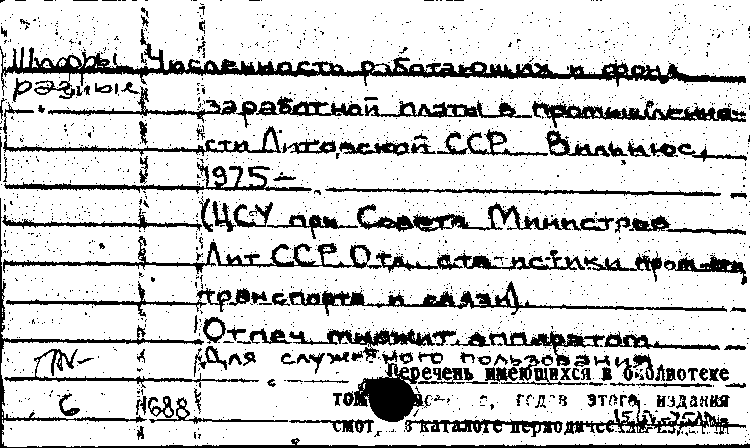 Шифры Численность работающих и фонд
разные
заработной платы в промышленно-
сти Литовской ССР. Вильнюс,
1975 –
(ЦСУ при Совете Министров
Лит ССР. Отд. статистики пром-сти,
транспорта и связи).
Отпеч. множит. аппаратом.
Для служебного пользования
Перечень имеющихся в библиотеке
6 1688 годов этого издания
смот. в каталоге периодических изданий